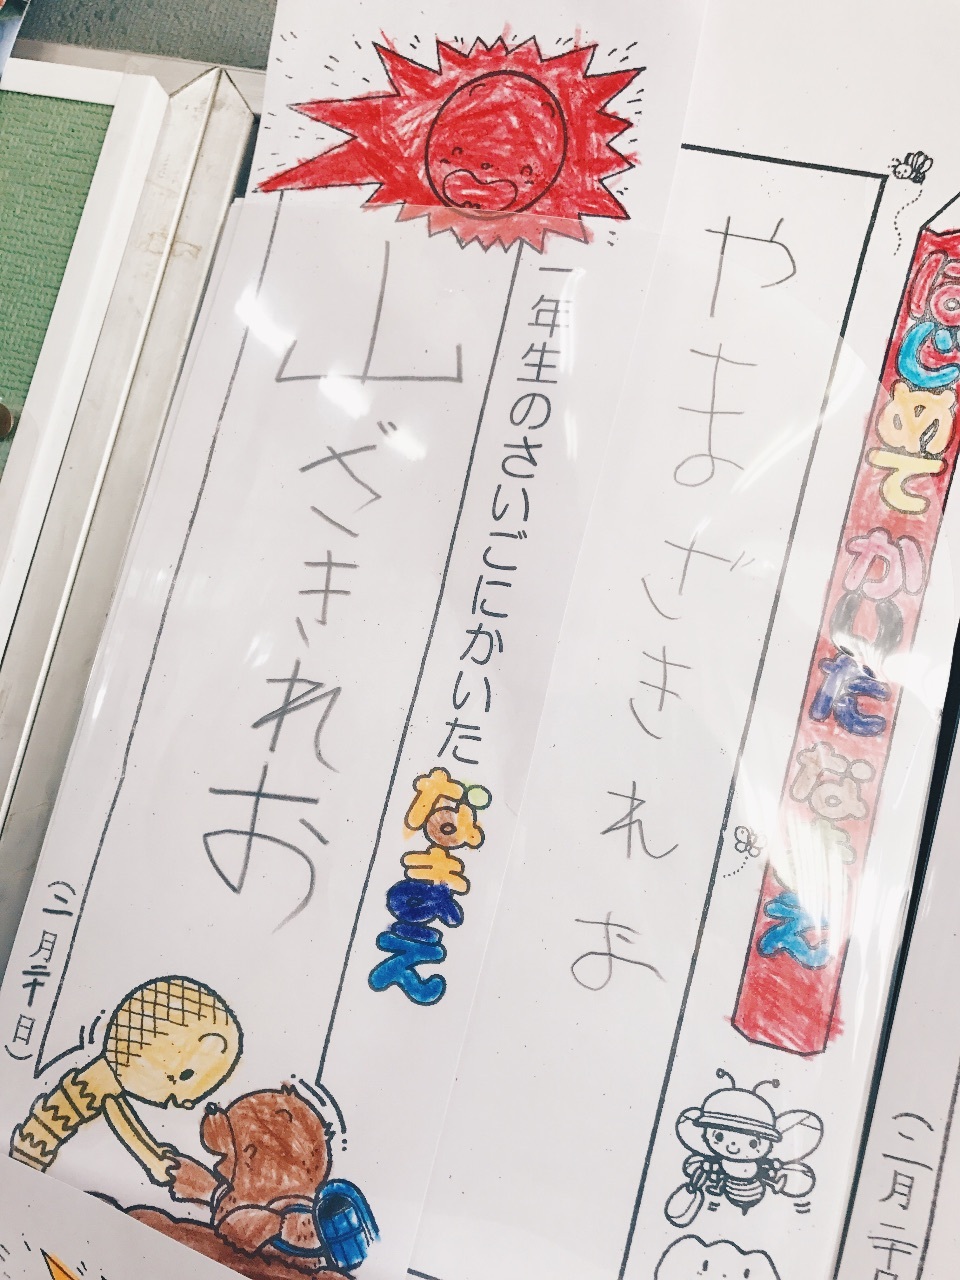 はじめてかいたなまえ
やまざきれお
一年生のさいごにかいたなまえ
山ざきれお
(三月二十日)